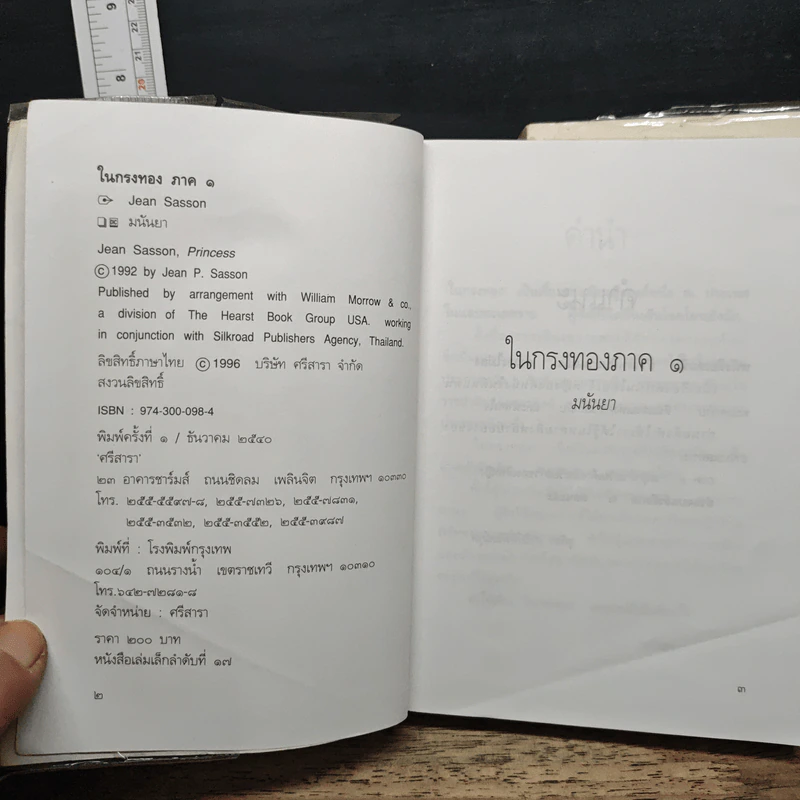 9
8
22
21
20
ในกรงทอง ภาค ๑
Jean Sasson
มนันยา
Jean Sasson, Princess
© 1992 by Jean P. Sasson
Published by arrangement with William Morrow & co.,
a division of The Hearst Book Group USA. working
in conjunction with Silkroad Publishers Agency, Thailand.
ลิขสิทธิ์ภาษาไทย © 1996 บริษัท ศรีสารา จำกัด
สงวนลิขสิทธิ์
ISBN : 974-300-098-4
พิมพ์ครั้งที่ ๑ / ธันวาคม ๒๕๔๐
'ศรีสารา'
๒๓ อาคารชาร์มส์ ถนนชิดลม เพลินจิต กรุงเทพฯ ๑๐๓๓๐
โทร. ๒๕๕-๕๕๙๗-๘, ๒๕๕-๗๓๒๖, ๒๕๕-๗๘๓๑,
๒๕๕-๓๕๓๒, ๒๕๕-๓๕๕๒, ๒๕๕-๓๙๘๗
พิมพ์ที่ : โรงพิมพ์กรุงเทพ
๑๐๔/๑ ถนนรางน้ำ เขตราชเทวี กรุงเทพฯ ๑๐๓๑๐
โทร.๖๔๒-๗๒๘๑-๘
จัดจำหน่าย : ศรีสารา
ราคา ๒๐๐ บาท
หนังสือเล่มเล็กลำดับที่ ๑๗
๒
ในกรงทองภาค ๑
มนันยา
๓